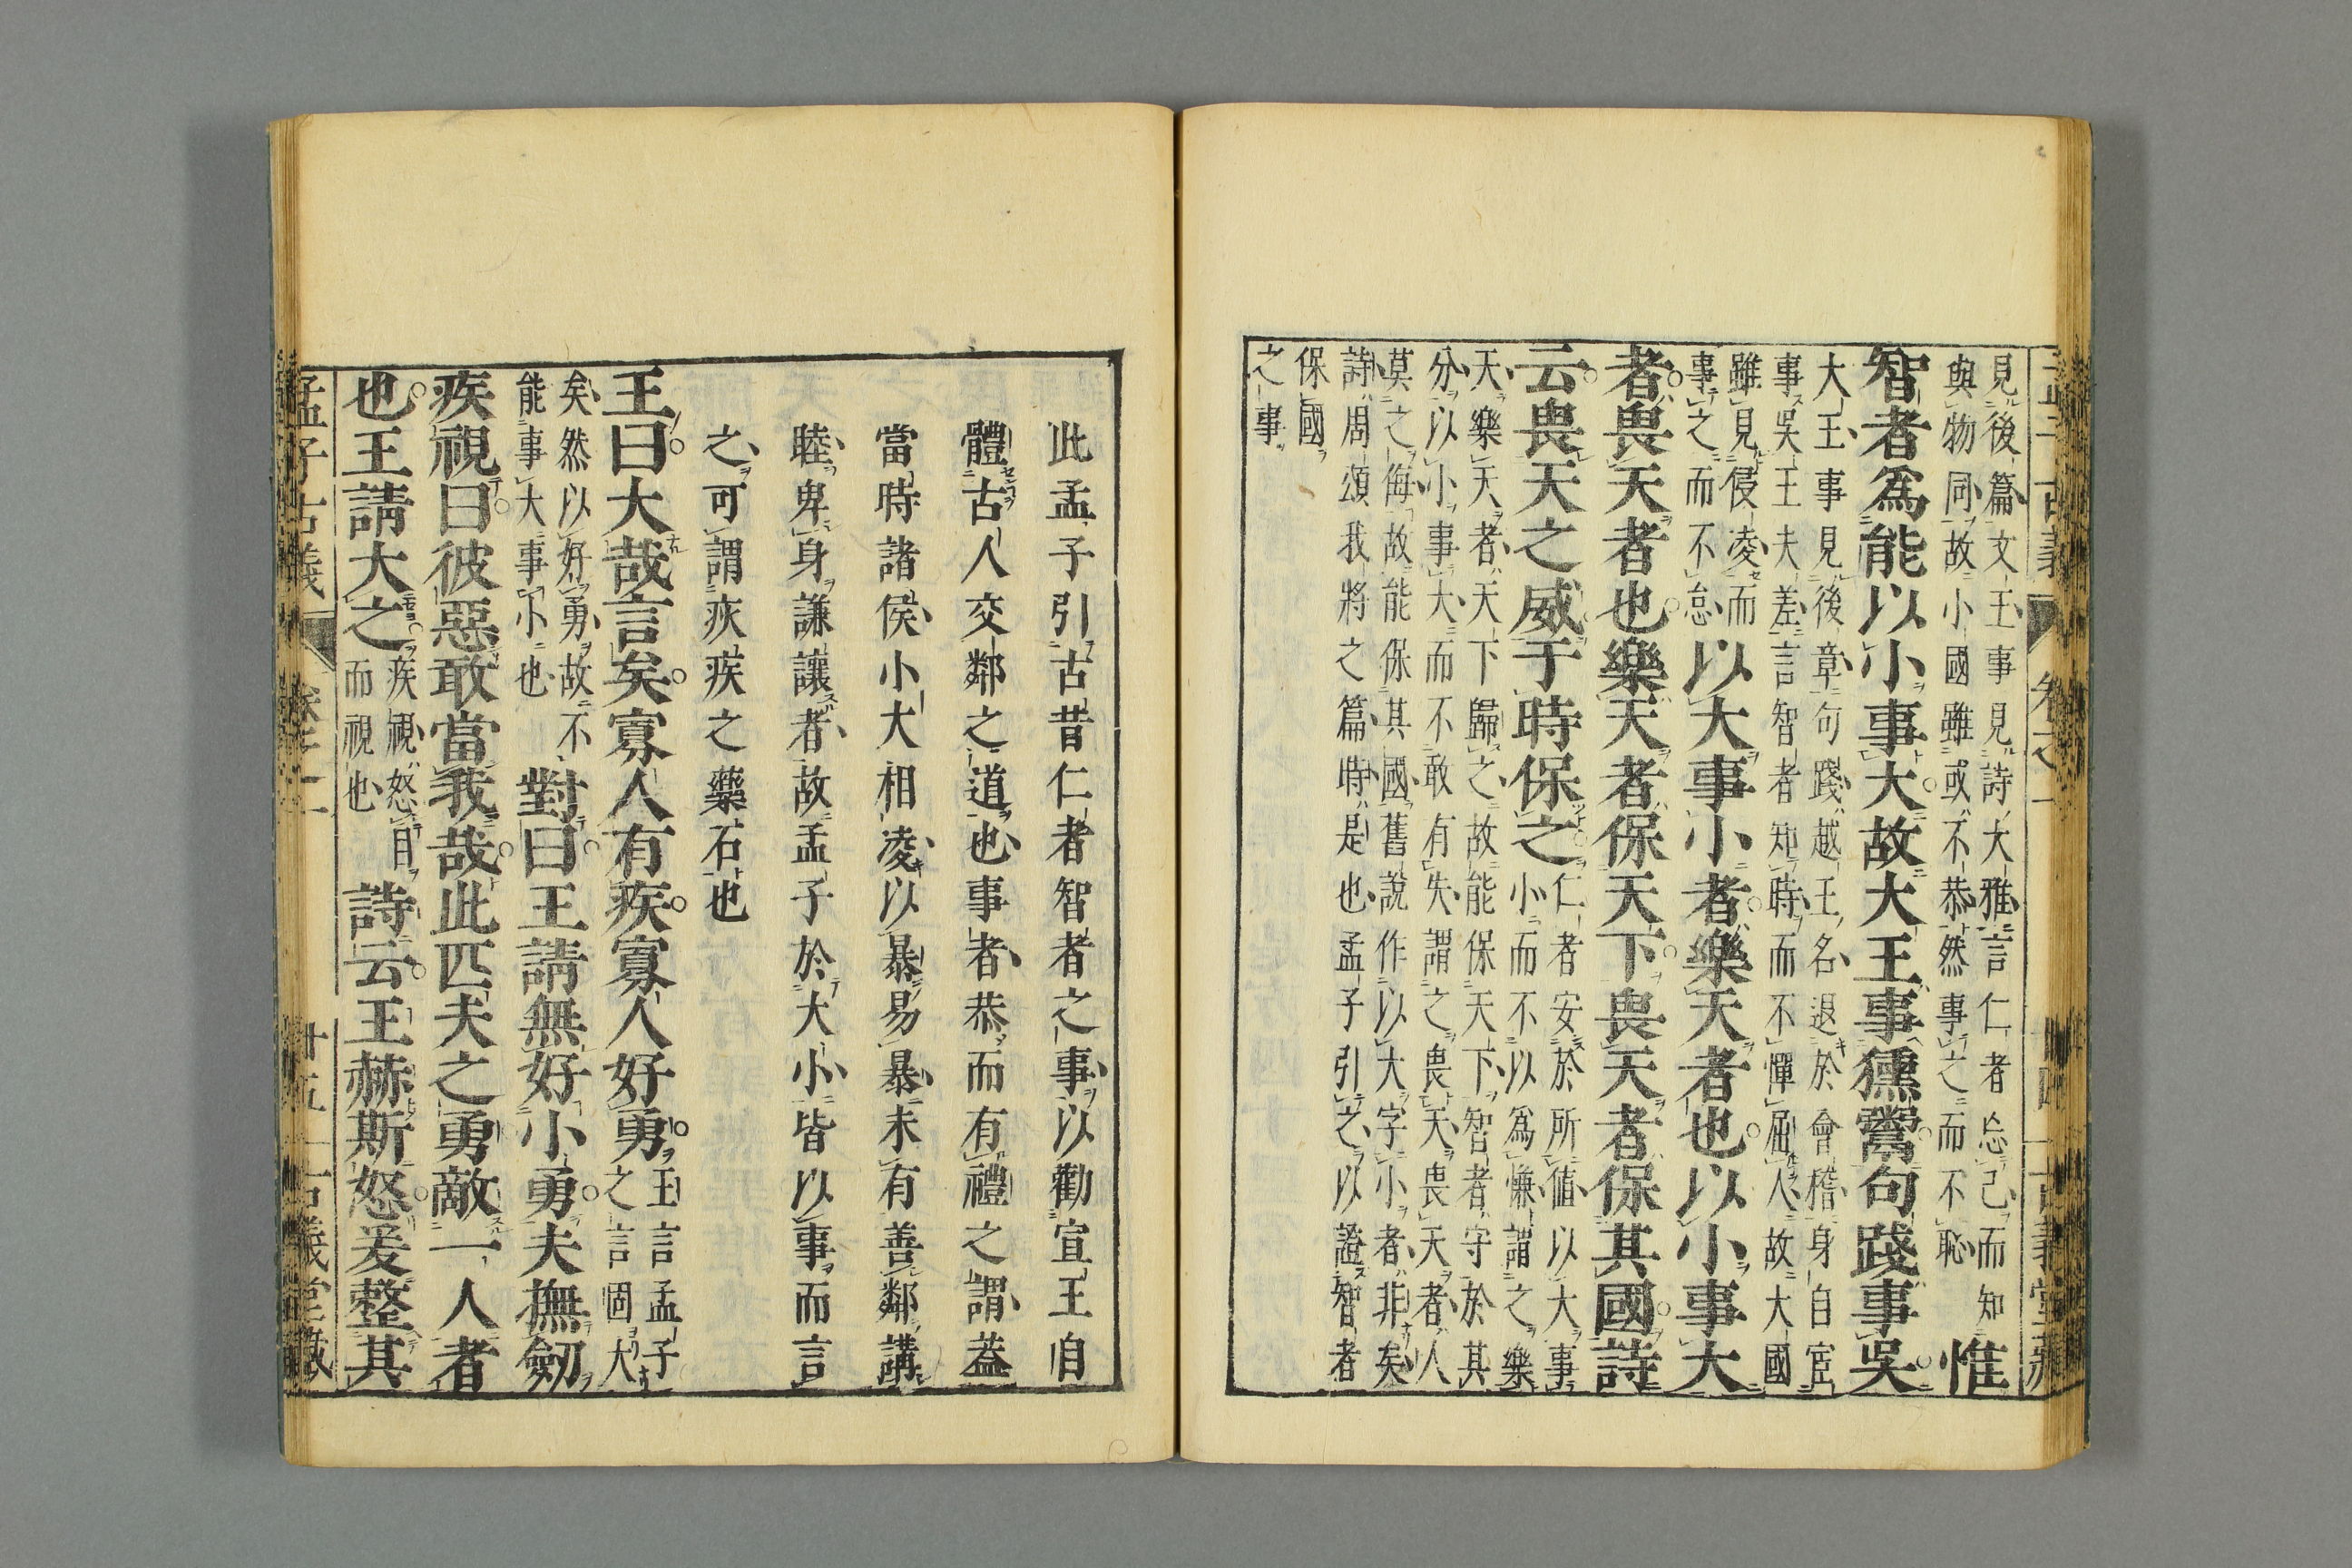 見後篇文王事見詩大雅言仁者忘己而知
與物同故小國雖或不恭然事之而不恥
惟
智者爲能以小事大故大王事獯鬻句踐事吳
大王事見後章句踐越王名退於會稽身自宦
事吳王夫差言智者知時而不憚屈人故大國
雖見侵凌而
事之而不怠
以大事小者樂天者也以小事大
者畏天者也樂天者保天下畏天者保其國詩
云畏天之威于時保之
仁者安於所値以大事
小而不以爲慊謂之樂
天樂天者天下歸之故能保天下智者守於其
分以小事大而不敢有失謂之畏天畏天者人
莫之侮故能保其國舊說作以大字小者非矣
詩周頌我將之篇時是也孟子引之以證智者
保國
之事
此孟子引古昔仁者智者之事以勸宣王自
體古人交鄰之道也事者恭而有禮之謂蓋
當時諸侯小大相凌以暴易暴未有善鄰講
睦卑身謙讓者故孟子於大小皆以事而言
之可謂疢疾之藥石也
王曰大哉言矣寡人有疾寡人好勇
王言孟子
之言固大
矣然以好勇故不
能事大事小也
對曰王請無好小勇夫撫劒
疾視曰彼惡敢當我哉此匹夫之勇敵一人者
也王請大之
疾視怒目
而視也
詩云王赫斯怒爰整其
孟子古義
卷之一
十五
古義堂藏